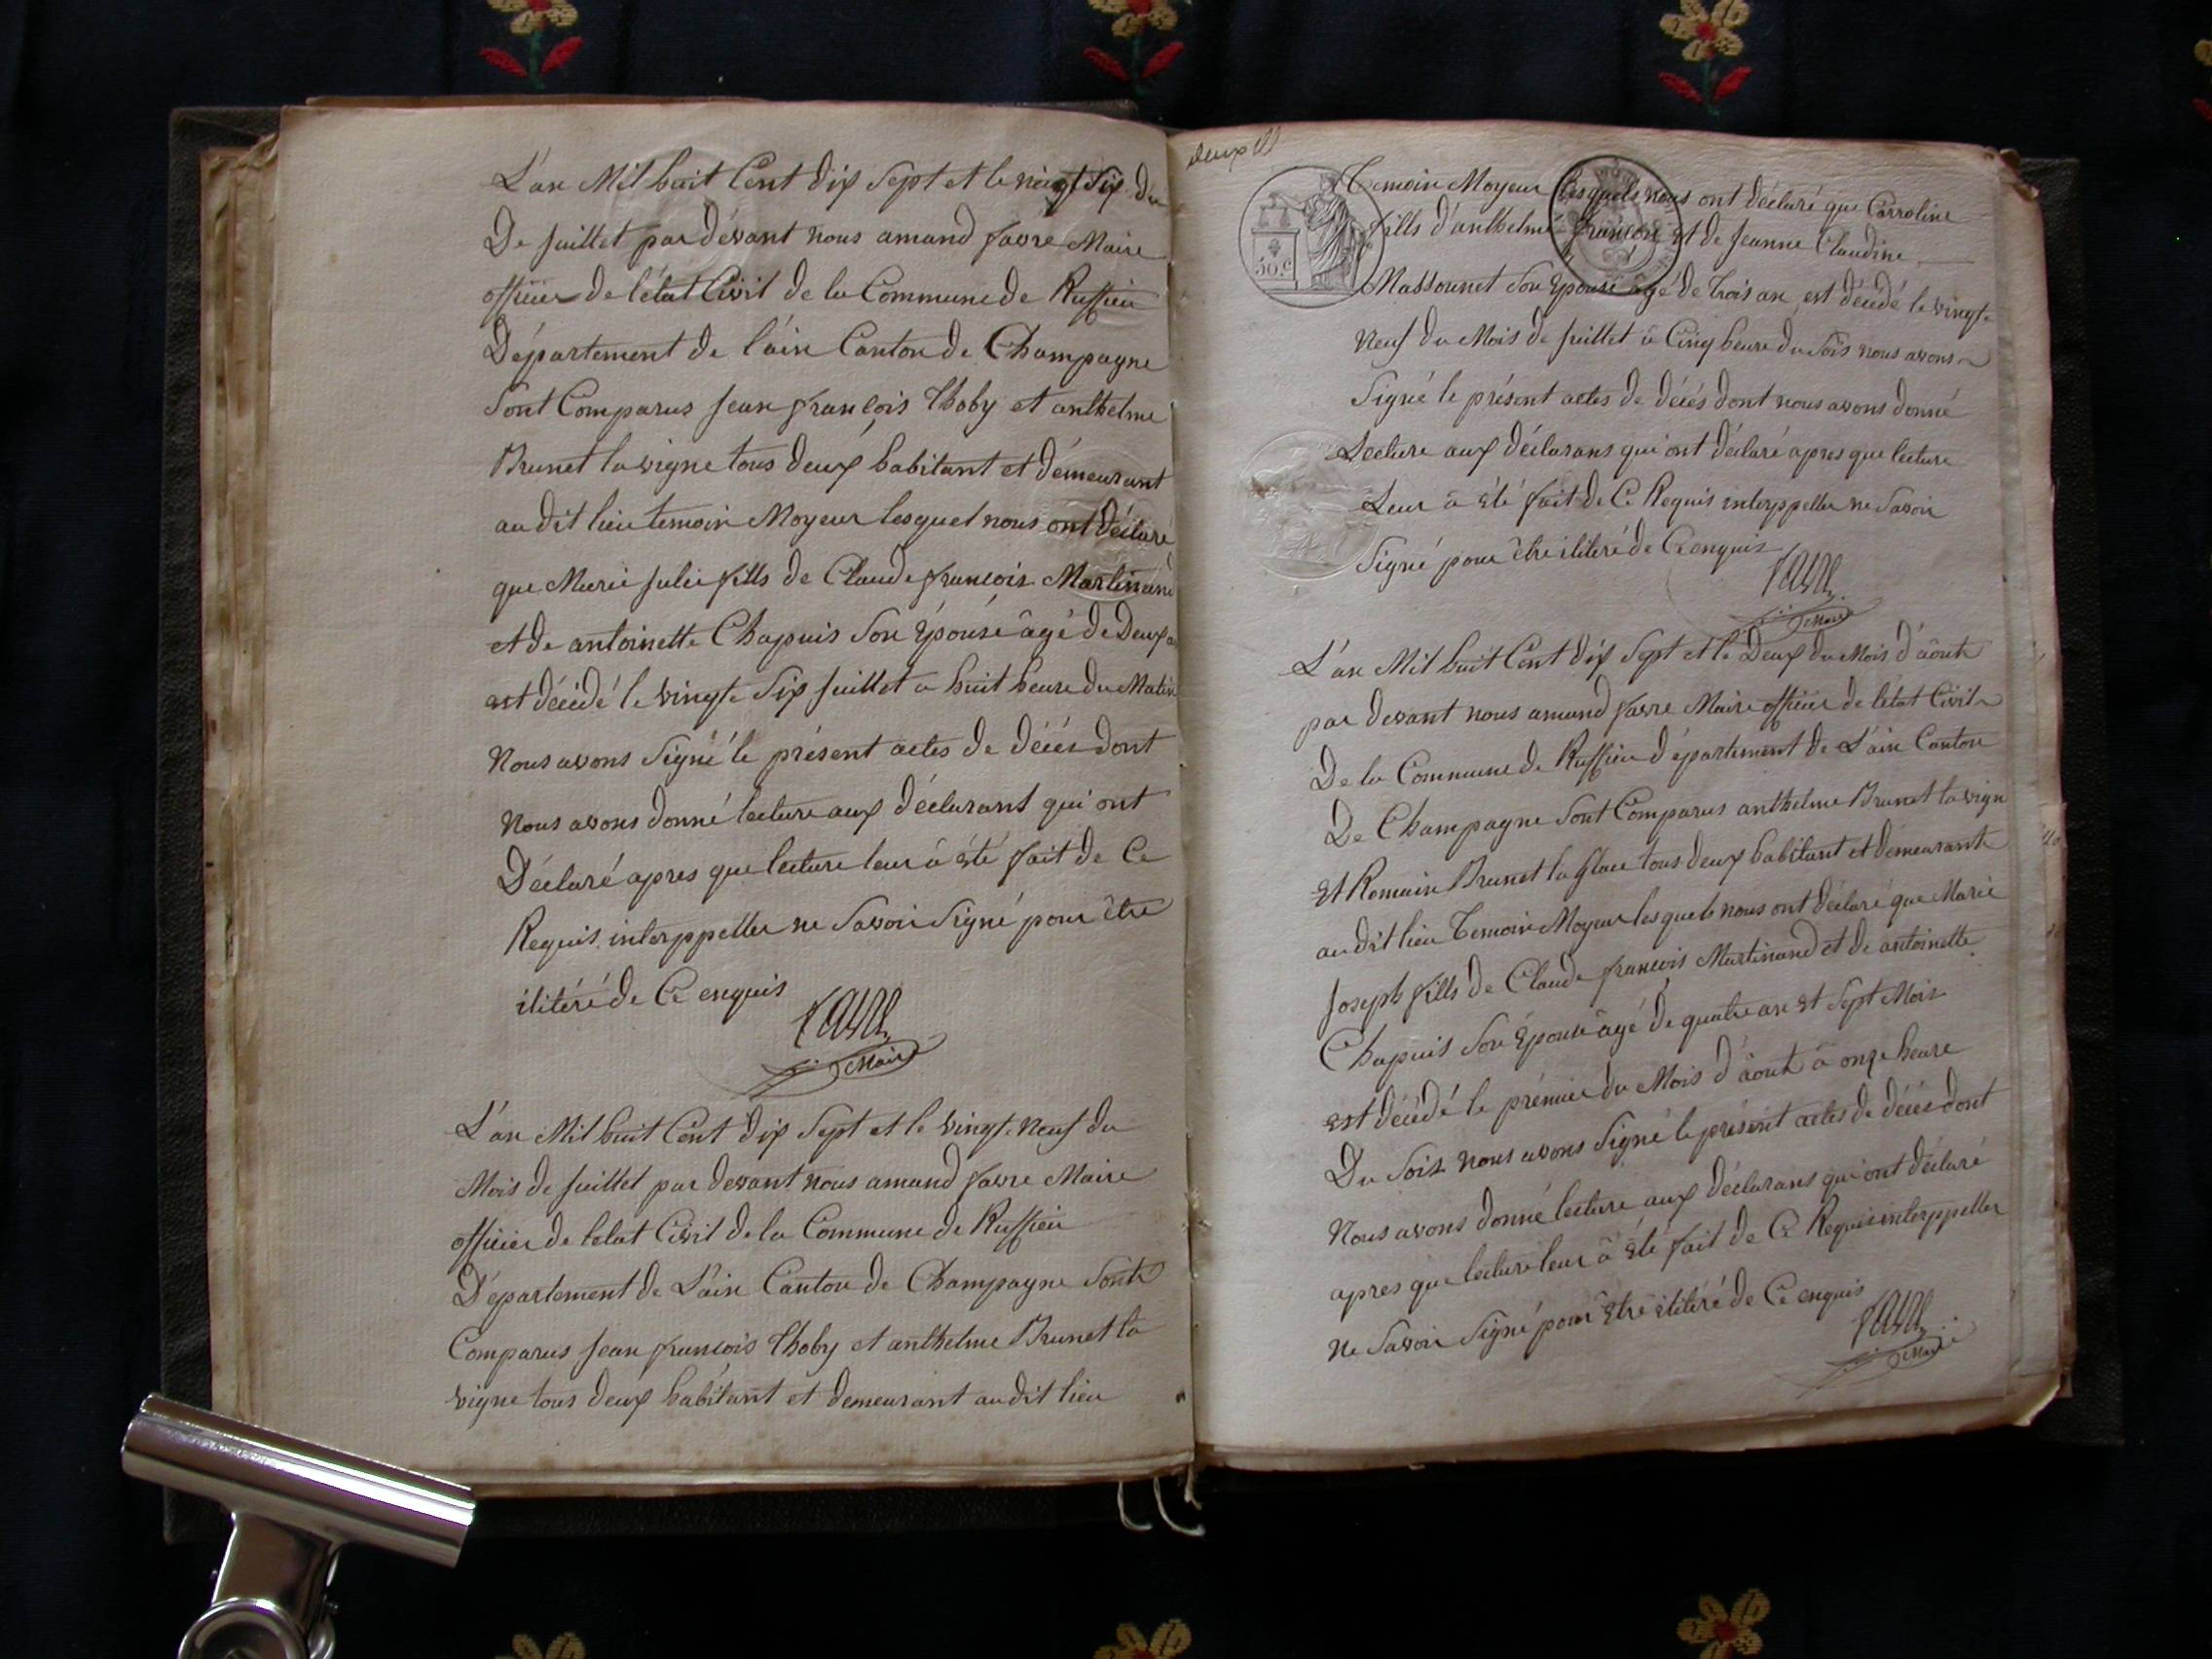 L'an Mil huit Cent dix Sept et le vingt Six du
De Juillet par dévant nous amand favre Maire
officier de l'état Civil de la Commune de Ruffieu
Département de l'ain Canton de Champagne
Sont Comparus Jean françois Thoby et anthelme
Brunet lavigne tous deux habitant et démeurant
au dit lieu temoin Moyeur lesquel nous ont déclaré
que Marie Julie fills de Claude françois Martinand
et de antoinette Chapuis Son Épousé âgé de Deux an
est décédé le vingt Six Juillet a huit heure du Matin
Nous avons Signé le présent actes de décés dont
Nous avons donné lecture aux déclarant qui ont
Déclaré apres que lecture leur â été fait de Ce
Requis interppeller ne Savoir Signé pour être
ilitéré de Ce enquis
favre
Maire
L'an Mil huit Cent dix Sept et le vingt Neuf du
Mois de Juillet par devant nous amand favre Maire
officier de letat Civil de la Commune de Ruffieu
Département de L'ain Canton de Champagne Sont
Comparus Jean françois Thoby et anthelme Brunet la
vigne tous deux habitant et demeurant au dit lieu
deux
Temoin Moyeur lesquels nous ont déclaré que Carroline
fills d'anthelme françois et de Jeanne Claudine
50.c
Massonnet Son Épousé âgé de trois an est décédé le vingt
Neuf du Mois de Juillet â Cinq heure du Soir nous avons
Signé le présent actes de décés dont nous avons donné
Lecture aux déclarans qui ont déclaré apres que lecture
Leur â été fait de Ce Requis interppeller ne Savoir
Signé pour être ilitéré de Ce enquis
favre
Maire
L'an Mil huit Cent dix Sept et le Deux du Mois d'août
par devant nous amand favre Maire officier de létat Civil
De la Commune de Ruffieu département de L'ain Canton
De Champagne Sont Comparus anthelme Brunet lavigne
Et Romain Brunet la glace tous deux habitant et démeurant
au dit lieu Temoin Moyeur lesquels nous ont déclaré que Marie
Joseph fills de Claude françois Martinand et de antoinette
Chapuis Son Épousé âgé de quatre an et Sept Mois
est décédé le prémier du Mois d'août â onze heure
Du Soir nous avons Signé le présent actes de décés dont
Nous avons donné lecture aux déclarans qui ont déclaré
apres que lecture leur â été fait de Ce Requis interppeller
ne Savoir Signé pour être ilitéré de Ce enquis
favre
Maire